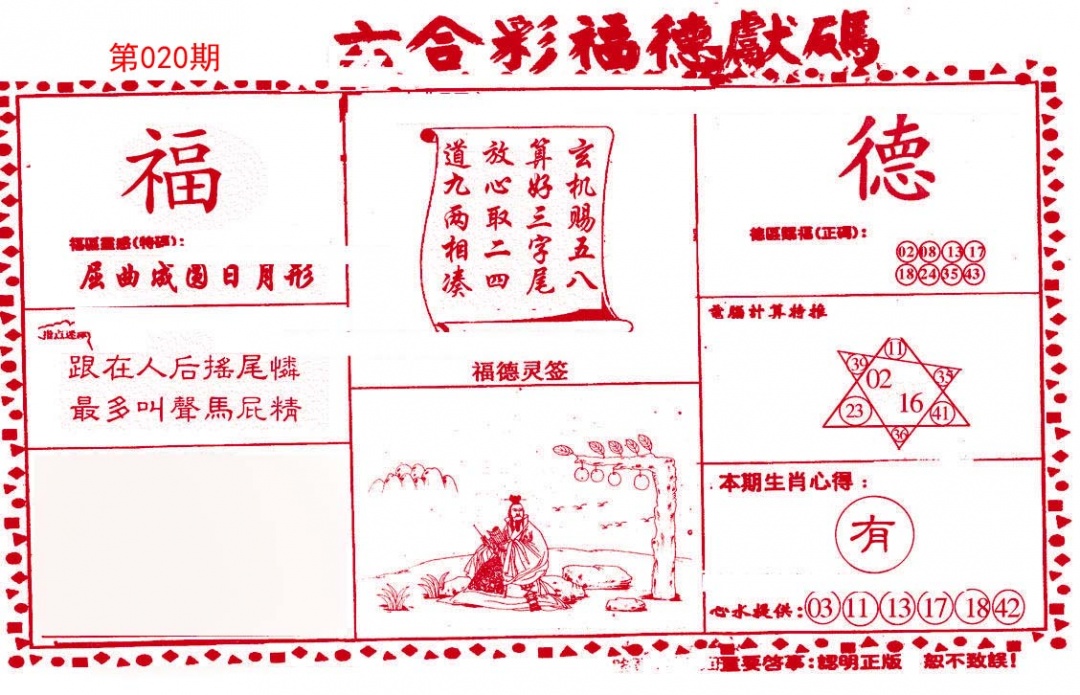 第020期
六合彩福德獻碼
福
福區靈感(特碼):
屈曲成圆日月形
跟在人后摇尾憐
最多叫聲馬屁精
玄机赐五八
算好三字尾
放心取二四
道九两相凑
福德灵签
德
德區賜福(正碼):
02 08 13 17
18 24 35 43
電腦計算特推
11
39 02 35
23 16 41
36
本期生肖心得:
有
心水提供:03 11 13 17 18 42
重要啓事:認明正版 恕不致誤!